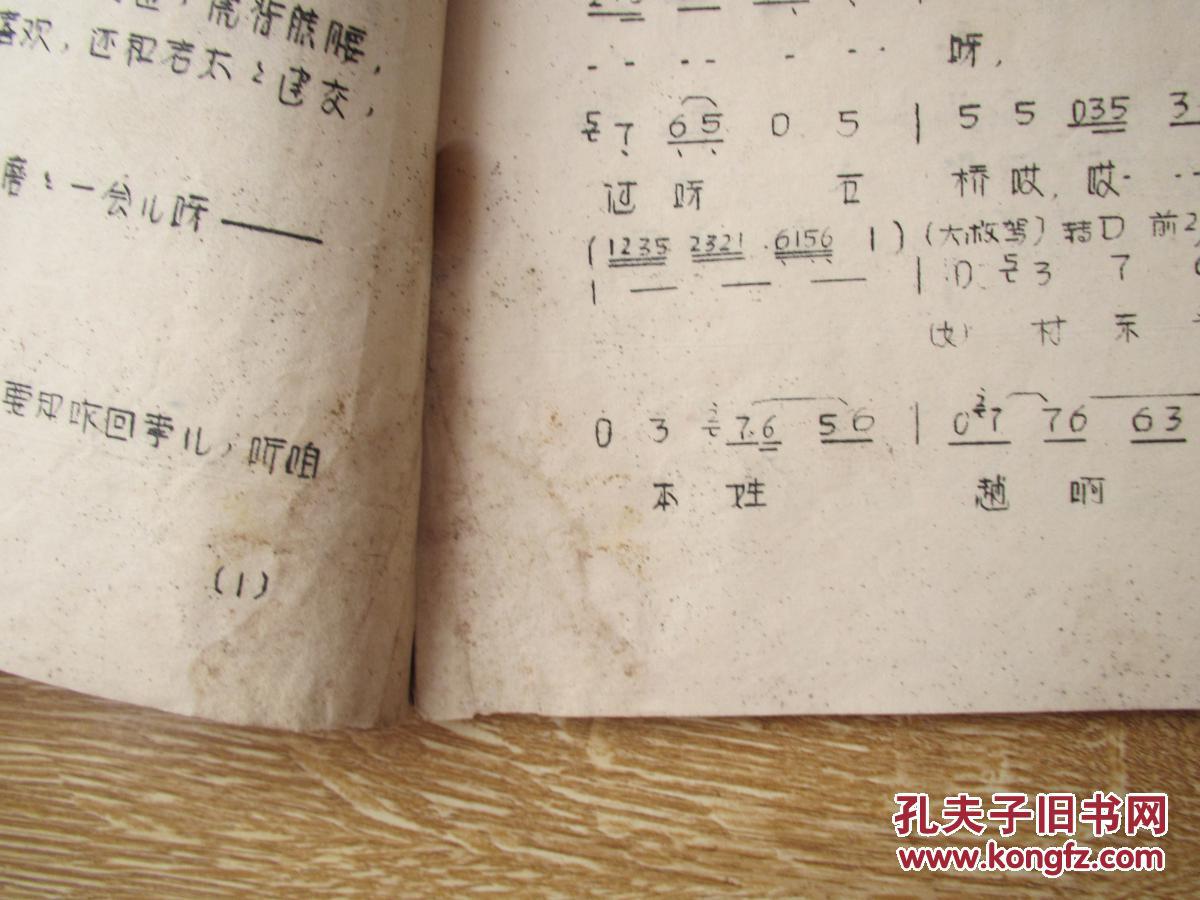 喜欢，还和岩太〻建交，
磨〻一会儿呀——
要知咋回事儿，听咱
(1)
呀，
5 7 65 0 5 | 5 5 035 3
过呀 卫 桥哎，哎··
(1235 2321 6156 1) (大救驾) 转D 前2
| — — — | 0 5 3 7
(女) 村 东
0 3 2 7.6 56 | 0 2 7 76 63
本 姓 赵 啊
孔夫子旧书网
www.kongfz.com